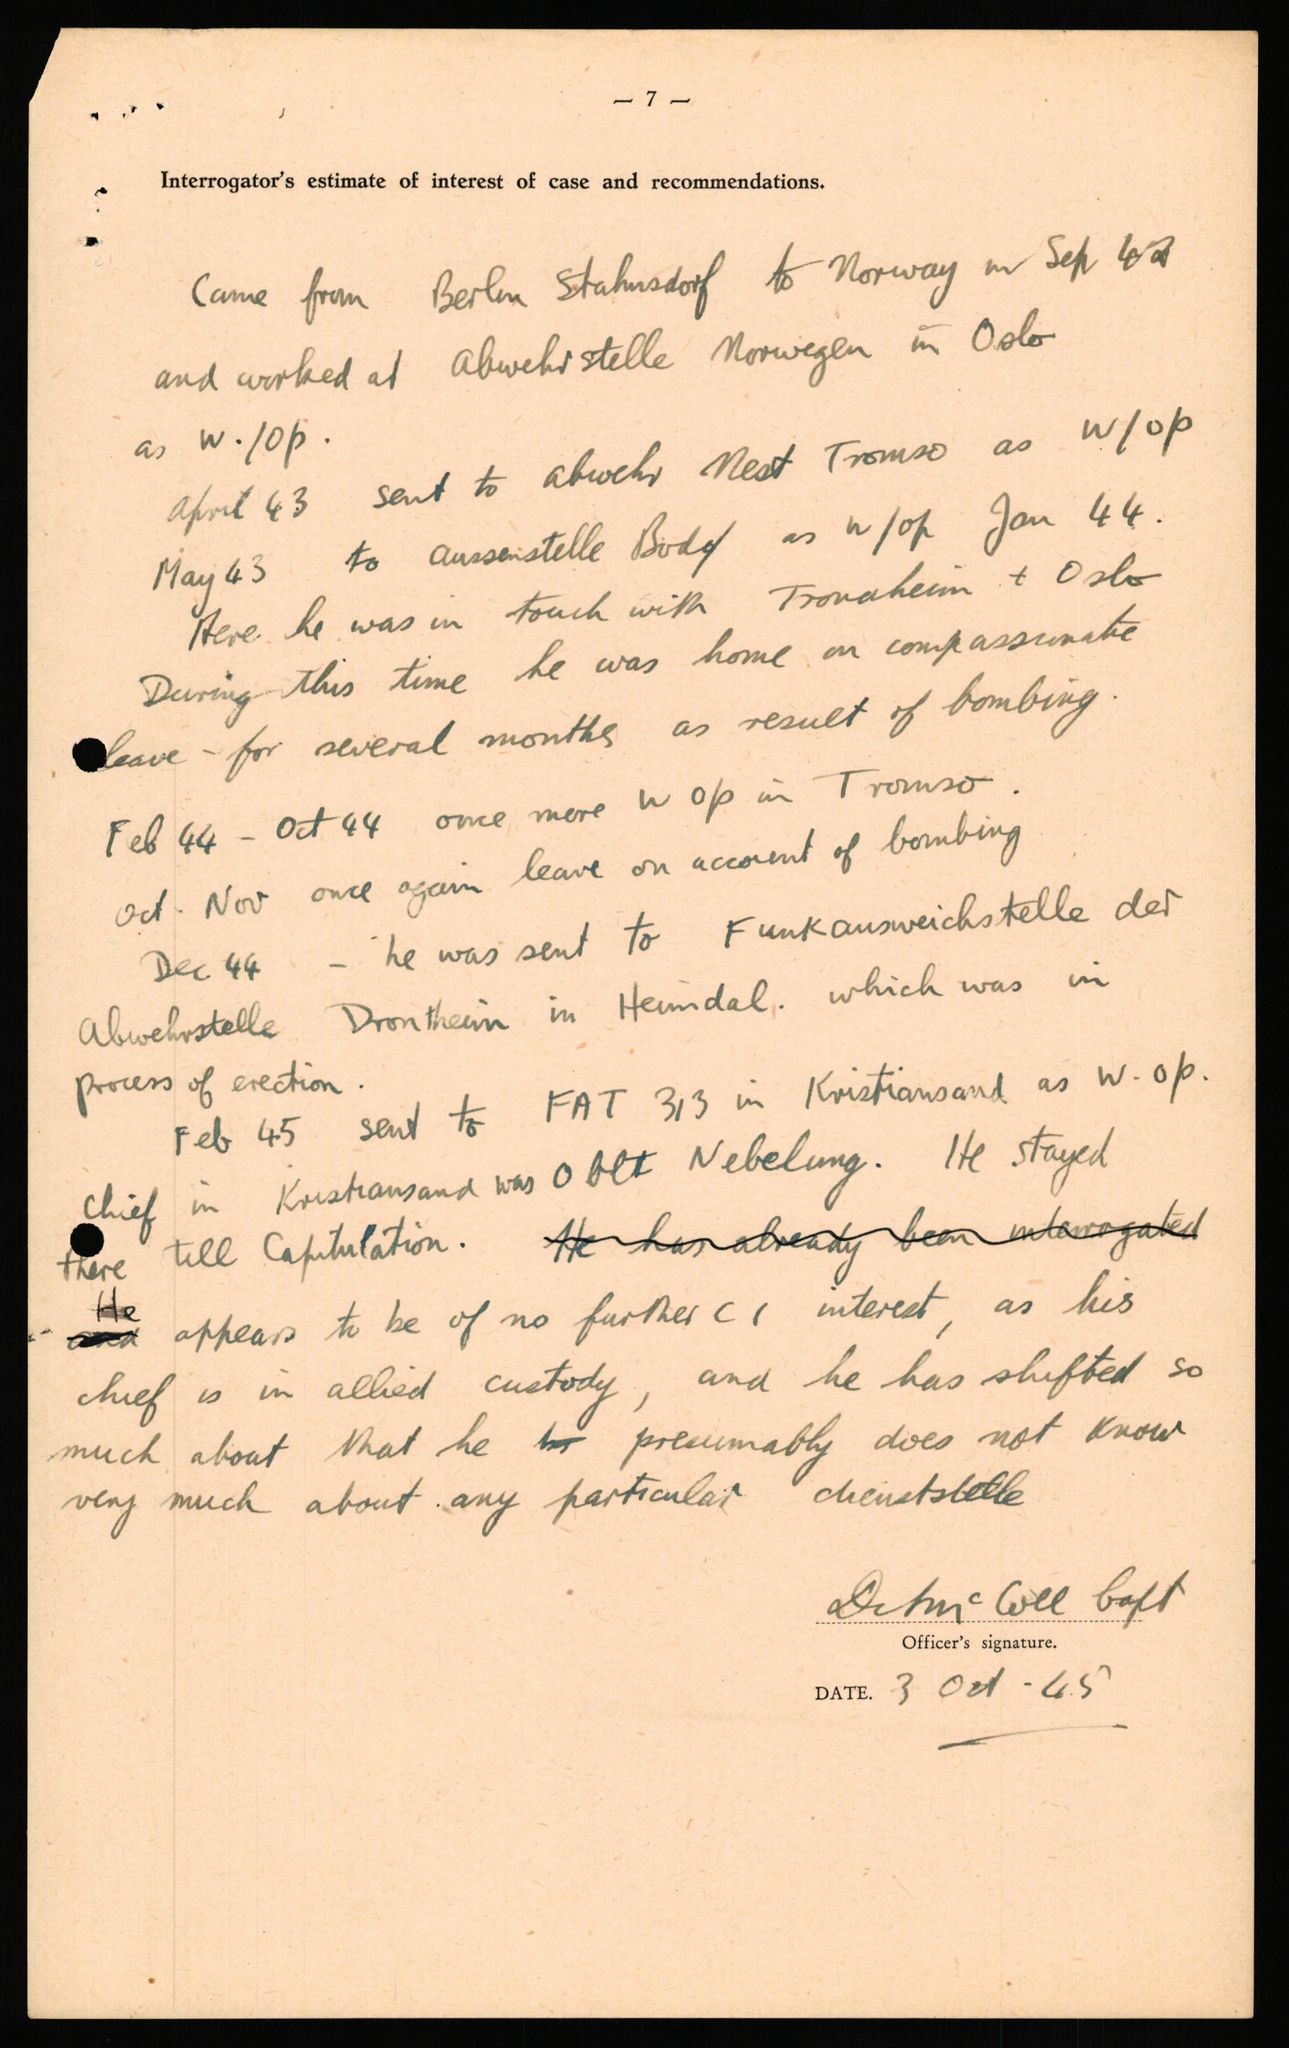 — 7 —
Interrogator's estimate of interest of case and recommendations.
Came from Berlin Stahnsdorf to Norway in Sep 42
and worked at Abwehrstelle Norwegen in Oslo
as W./Op.
April 43 sent to Abwehr Nest Tromso as W/op
May 43 to Aussenstelle Bodø as W/op Jan 44.
Here he was in touch with Trondheim + Oslo
During this time he was home on compassionate
leave – for several months as result of bombing.
Feb 44 – Oct 44 once more W op in Tromso.
Oct - Nov once again leave on account of bombing
Dec 44 – he was sent to Funkausweichstelle der
Abwehrstelle Drontheim in Heimdal. which was in
process of erection.
Feb 45 sent to FAT 313 in Kristiansand as W. op.
Chief in Kristiansand was Oblt Nebelung. He stayed
there till Capitulation. He has already been interrogated
He
and appears to be of no further C I interest, as his
chief is in allied custody, and he has shifted so
much about that he presumably does not know
very much about any particular dienststelle
McColl Capt
Officer's signature.
DATE. 3 Oct - 45